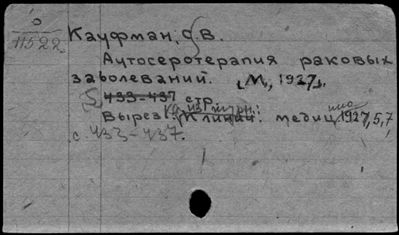 0
11522
Кауфман, О.В.
Аутосеротерапия раковых
заболеваний. [М., 1927].
433-437 стр.
Вырез. из журн.: Клинич. медицина
1927, 5, 7
с. 433-437.